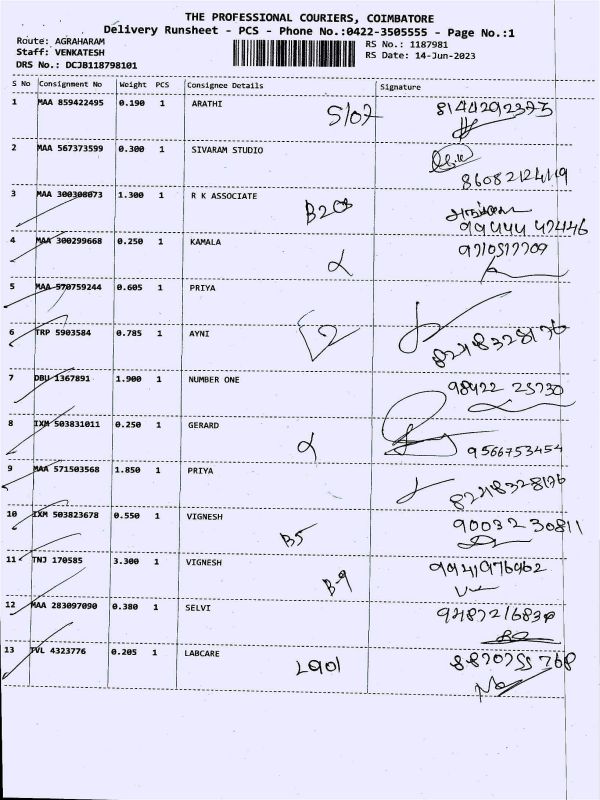 THE PROFESSIONAL COURIERS, COIMBATORE
Delivery Runsheet - PCS - Phone No.:0422-3505555 - Page No.:1
Route: AGRAHARAM
Staff: VENKATESH
DRS No.: DCJB118798101
RS No.: 1187981
RS Date: 14-Jun-2023
S No Consignment No Weight PCS Consignee Details Signature
1 MAA 859422495 0.190 1 ARATHI S/07 8144292375
2 MAA 567373599 0.300 1 SIVARAM STUDIO
3 MAA 300308073 1.300 1 R K ASSOCIATE 99444 47446
4 MAA 300299668 0.250 1 KAMALA
5 MAA 570759244 0.605 1 PRIYA
6 TRP 5903584 0.785 1 AYNI
7 DBU 1367891 1.900 1 NUMBER ONE
8 IXM 503831011 0.250 1 GERARD 9566753454
9 MAA 571503568 1.850 1 PRIYA
10 IXM 503823678 0.550 1 VIGNESH B5 90032 30811
11 TNJ 170585 3.300 1 VIGNESH B-9 9941976962
12 MAA 283097090 0.380 1 SELVI
13 TVL 4323776 0.205 1 LABCARE L901